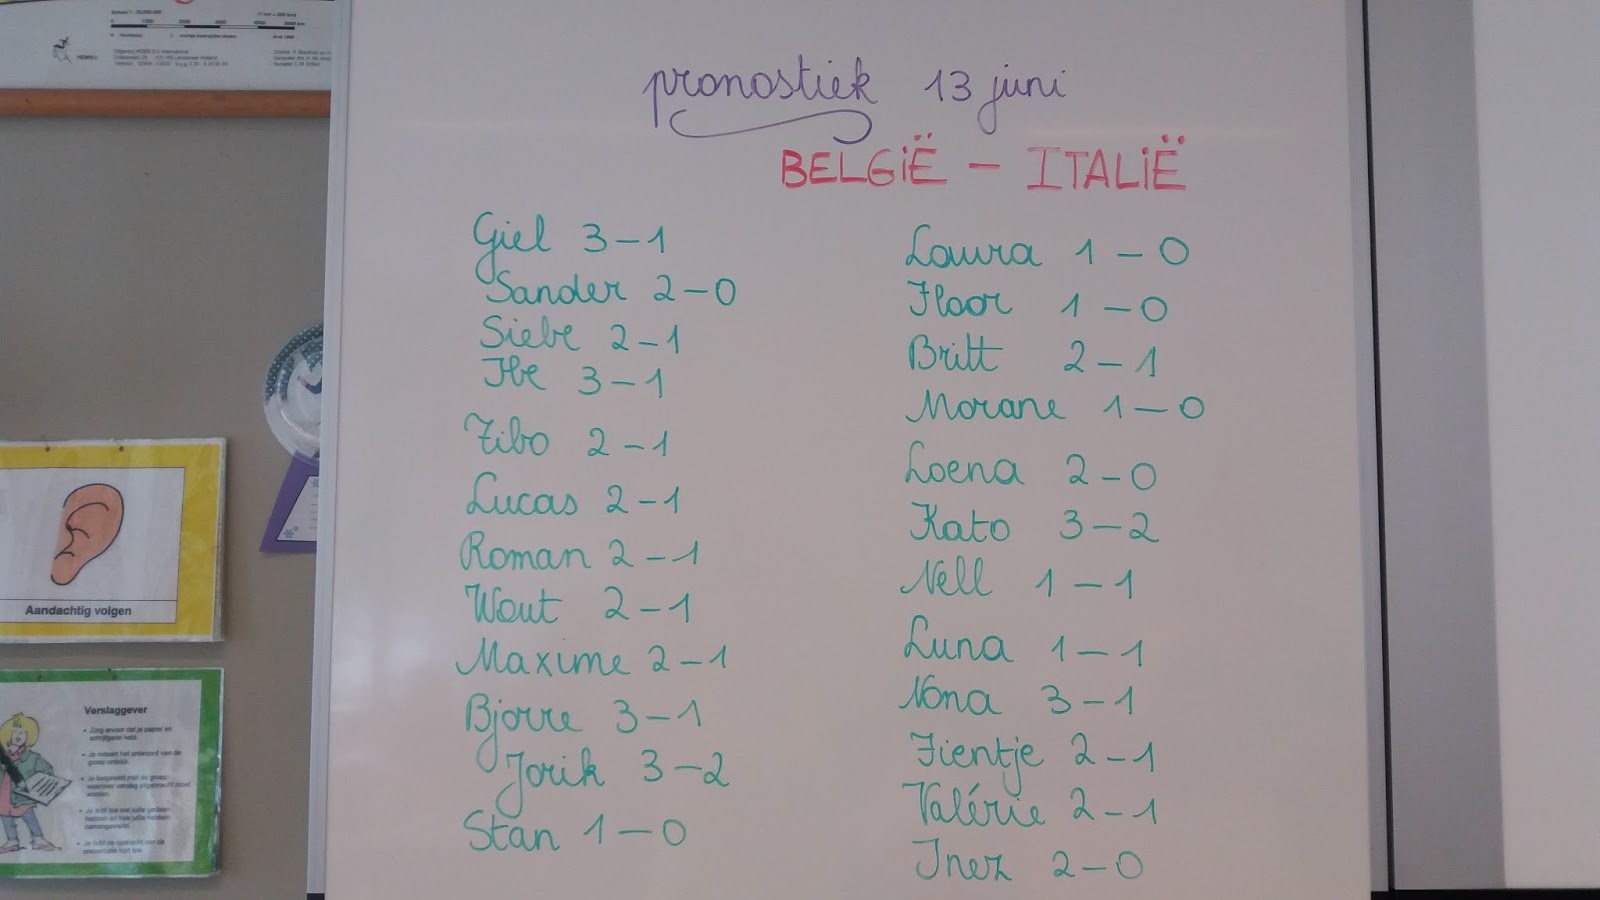 pronostiek 13 juni
BELGIË - ITALIË
Giel 3-1
Sander 2-0
Siebe 2-1
Ibe 3-1
Tibo 2-1
Lucas 2-1
Roman 2-1
Wout 2-1
Maxime 2-1
Bjorre 3-1
Jorik 3-2
Stan 1-0
Laura 1-0
Floor 1-0
Britt 2-1
Morane 1-0
Loena 2-0
Kato 3-2
Nell 1-1
Luna 1-1
Nona 3-1
Fientje 2-1
Valérie 2-1
Inez 2-0
Aandachtig volgen
Verslaggever
Zorg ervoor dat je papier en
schrijfgerei hebt.
Je noteert het antwoord van de
groep